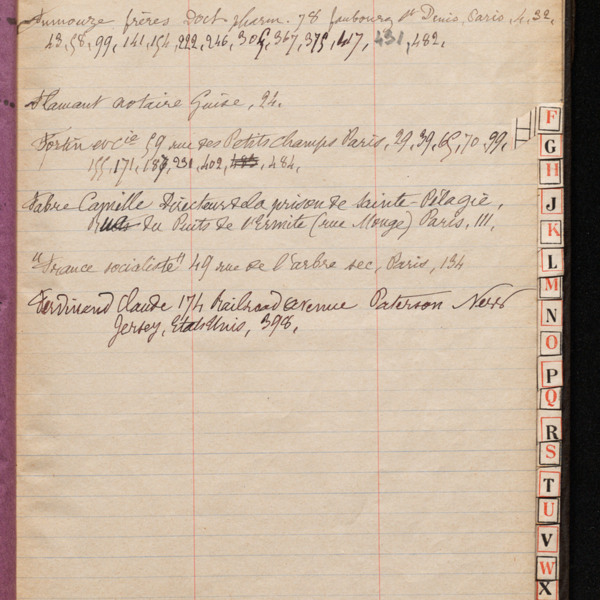 frères doct pharm. 78 faubourg St Denis, Paris, 4, 32,
43, 58, 99, 141, 154, 222, 246, 305, 367, 375, 417, 431, 482,
Flamant notaire Guise, 24.
Fortin et Cie 59 rue des Petits champs Paris, 29, 39, 65, 70, 99,
155, 171, 187, 231, 402, 484,
Fabre Camille Directeur de la prison de Sainte-Pélagie,
du Puits de l'Ermite (rue Monge) Paris, 111,
"France socialiste" 49 rue de l'arbre sec, Paris, 134
Ferdinand Claude 174 Railroad avenue Paterson New
Jersey, Etats Unis, 398,
F
G
H
J
K
L
M
N
O
P
Q
R
S
T
U
V
W
X